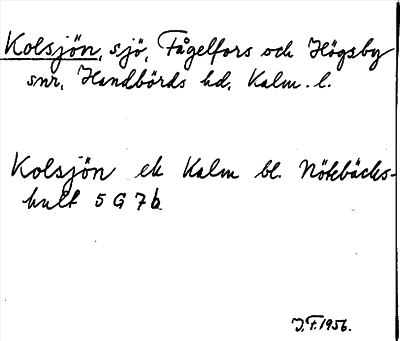 Kolsjön, sjö, Fågelfors och Högsby
snr, Handbörds hd, Kalm. l.
Kolsjön ek Kalm bl. Nötebäcks-
hult 5 G 7 b
J.F. 1956.